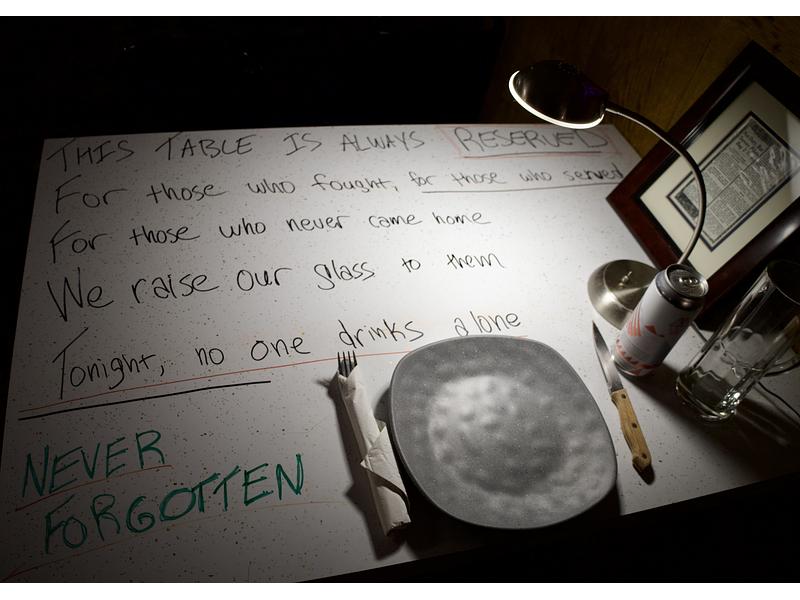 THIS TABLE IS ALWAYS RESERVED
For those who fought, for those who served
For those who never came home
We raise our glass to them
Tonight, no one drinks alone
NEVER
FORGOTTEN